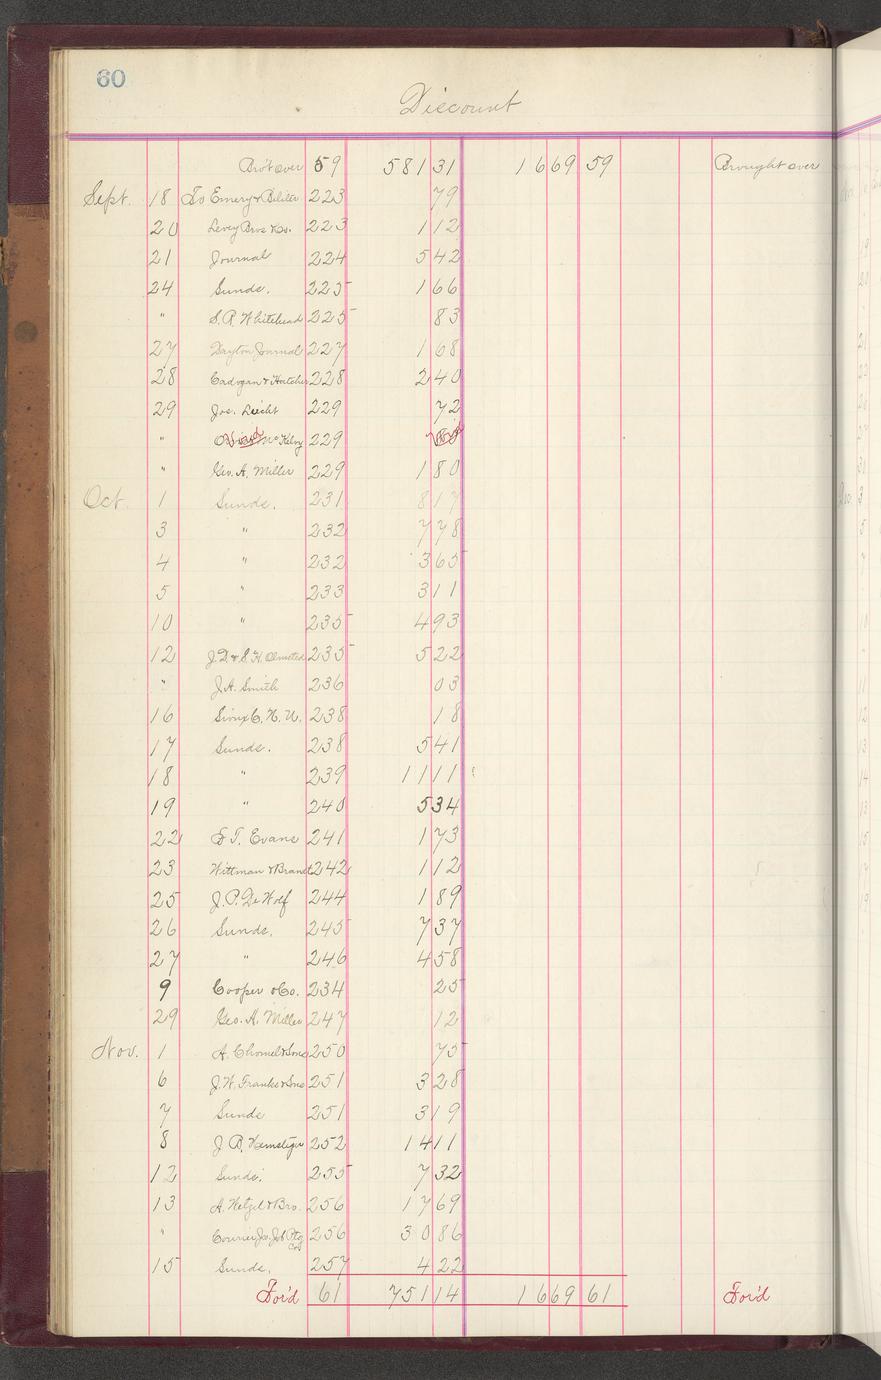 60
Discount
Bro't over 59 581 31 1669 59 Brought over
Sept. 18 To Emery & 223 79
20 Levey Bros & Co. 223 1 12
21 Journal 224 5 42
24 Sunds. 225 1 66
" S. R. Whitehead 225 83
27 Dayton Journal 227 1 68
28 Cadogan & Hatcher 228 2 40
29 Jos. Leicht 229 72
" Void McKelvy 229 Void
" Geo. A. Miller 229 1 80
Oct. 1 Sunds. 231 8 17
3 " 232 7 78
4 " 232 3 65
5 " 233 3 11
10 " 235 4 93
12 J. D. & S. H. Olmsted 235 5 22
" J. A. Smith 236 03
16 Sioux C. N. U. 238 18
17 Sunds. 238 5 41
18 " 239 11 11
19 " 240 5 34
22 T. Evans 241 1 73
23 Wittman & Brandt 242 1 12
25 J. P. De Wolf 244 1 89
26 Sunds. 245 7 37
27 " 246 4 58
9 Cooper & Co. 234 25
29 Geo. A. Miller 247 12
Nov. 1 A. Chomel & Sons 250 75
6 J. W. Franks & Sons 251 3 28
7 Sunds 251 3 19
8 J. B. 252 14 11
12 Sunds. 255 7 32
13 A. Hetzel & Bro. 256 17 69
" Courier Jo. Job Ptg Co 256 30 86
15 Sunds. 257 4 22
For'd 61 751 14 1669 61 For'd